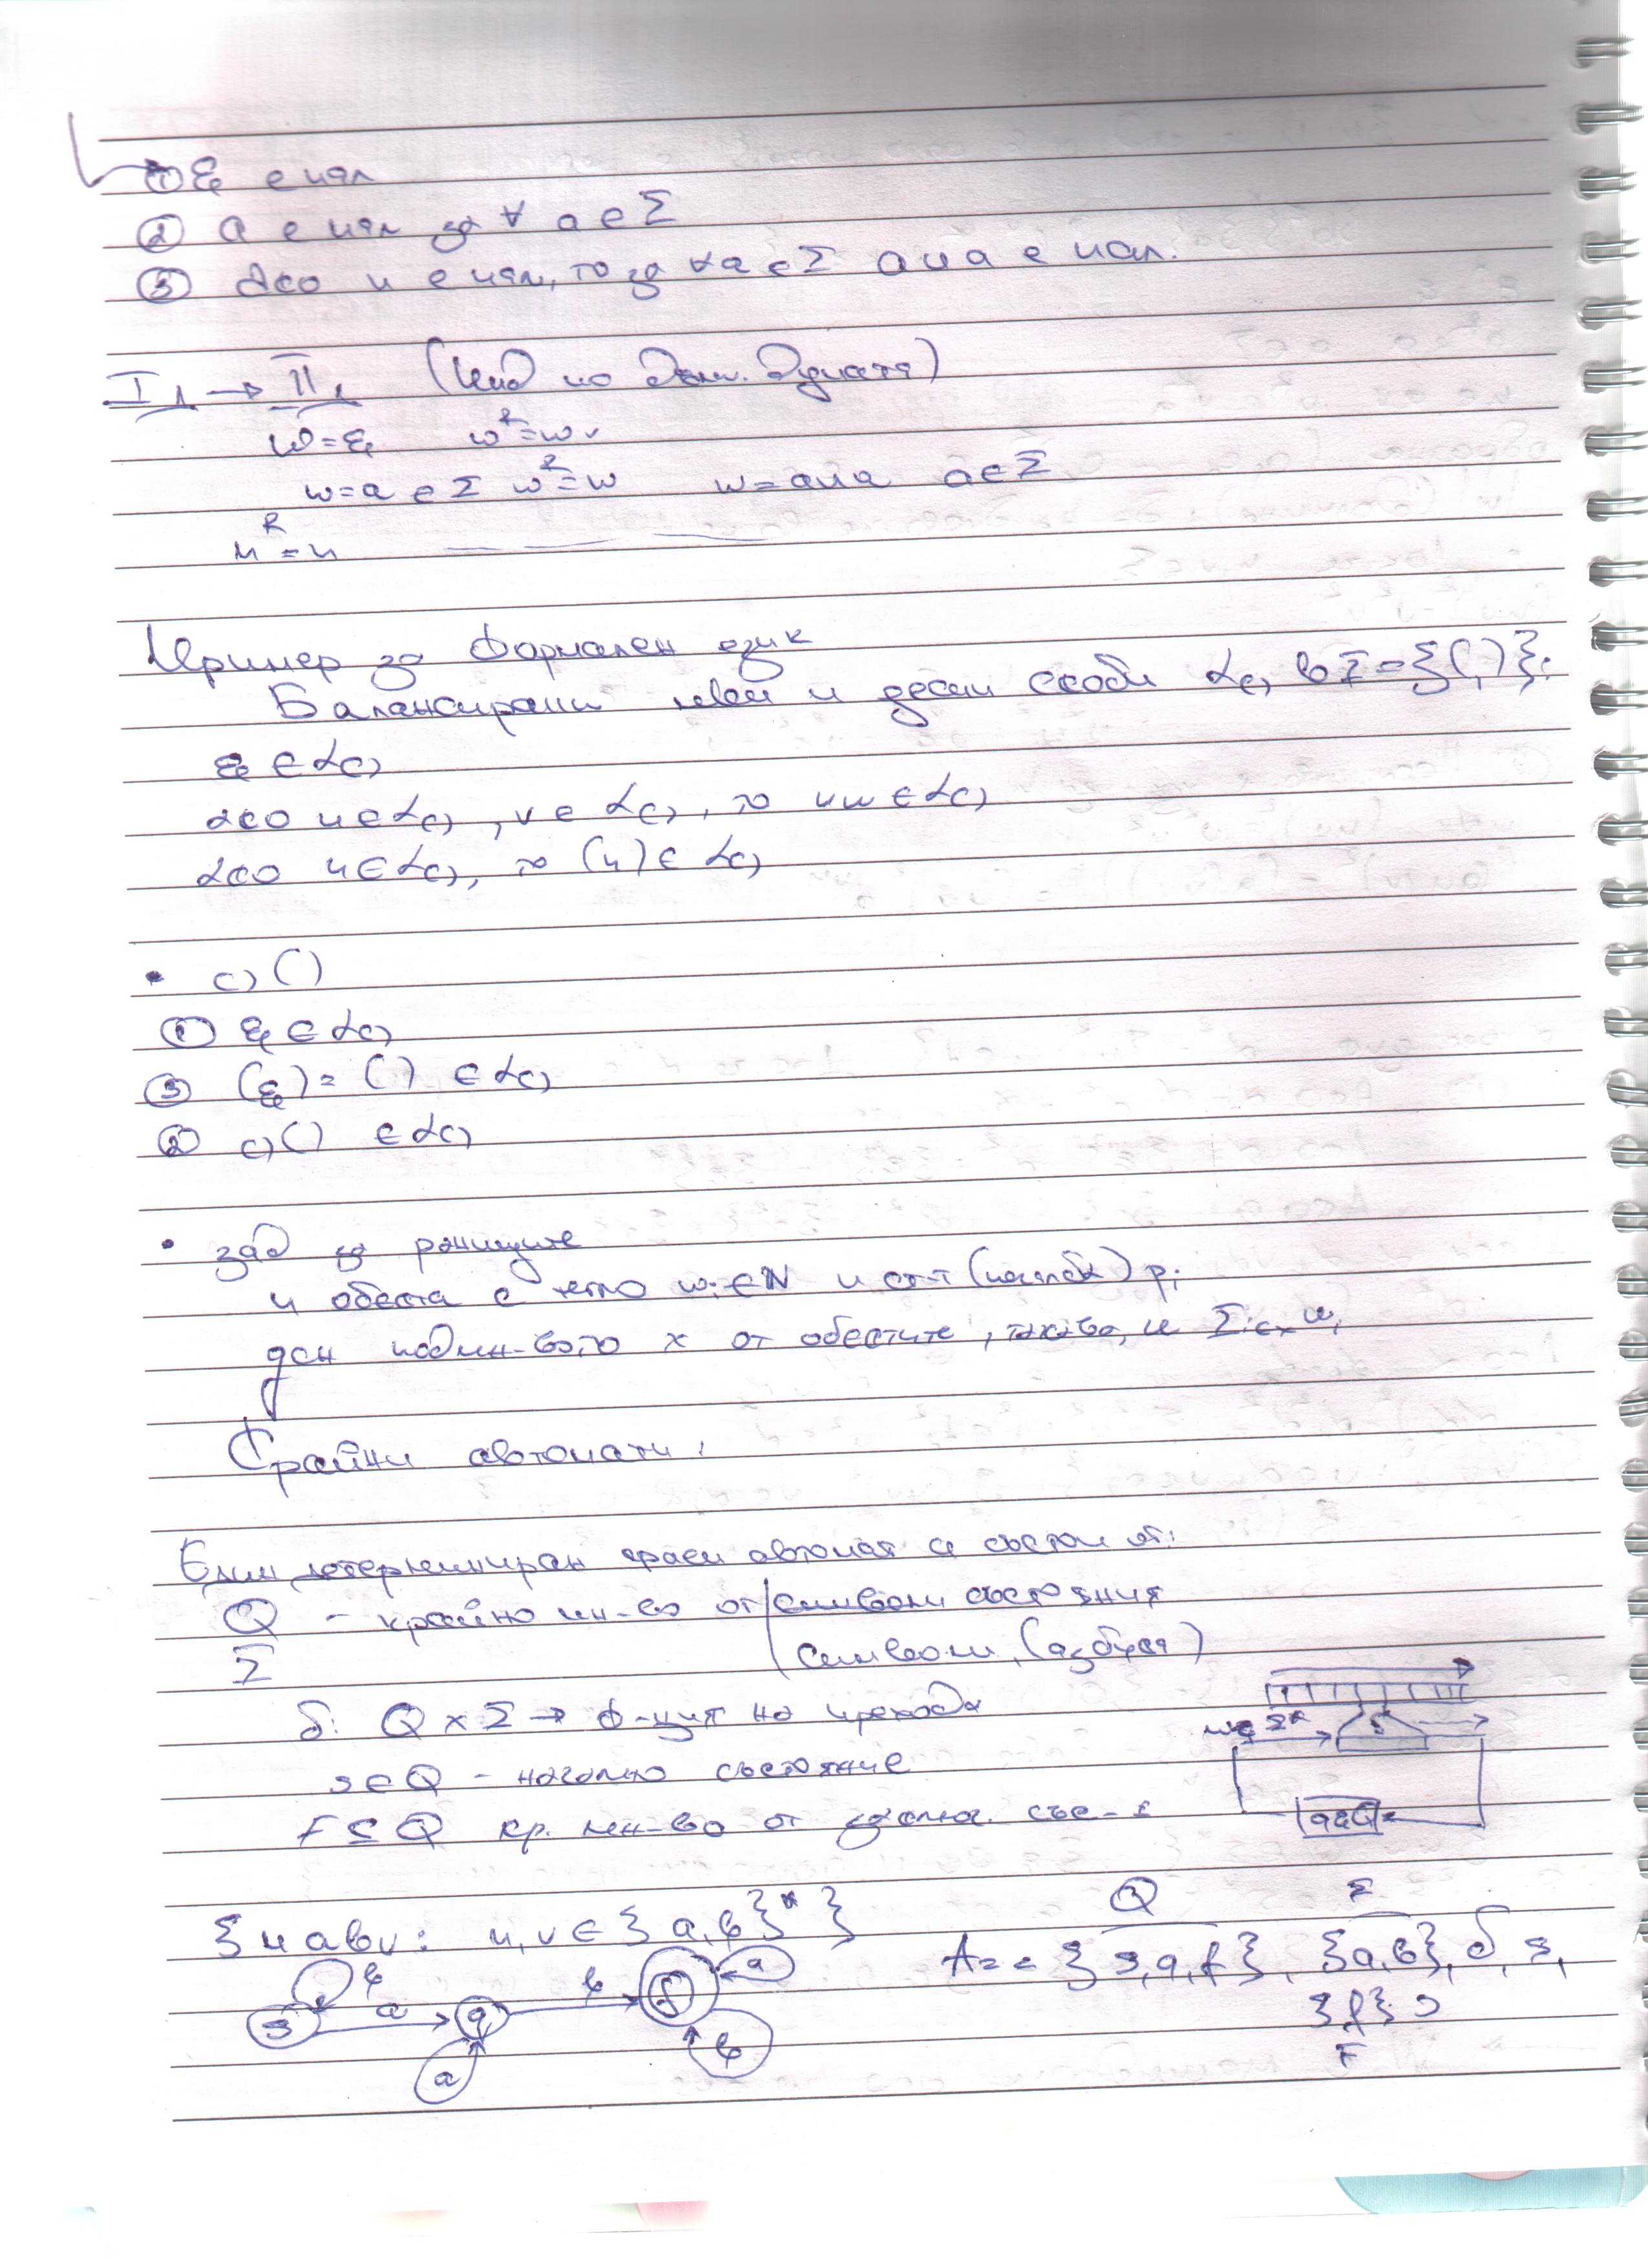 ① ε е пал
② a е пал за ∀ a ∈ Σ
③ Ако u е пал, то за ∀a ∈ Σ aua е пал.
I → II (Инд по дълж. думата)
w=ε w^R=w ✓
w=a ∈ Σ w^R=w w=aua a∈Σ
u^R=u
Пример за формален език
Балансирани леви и десни скоби L(), в Σ={(,)}:
ε ∈ L()
ако u∈L(), v∈ L(), то uv ∈ L()
ако u∈L(), то (u) ∈ L()
• ()()
① ε ∈ L()
③ (ε) = () ∈ L()
② ()() ∈ L()
• зад за раниците
n обекта с тегло wi∈ℕ и ст-т (печалба) pi
дан подмн-вото x от обектите, такова, че Σi∈x wi
Крайни автомати:
Един детерминиран краен автомат се състои от:
Q - крайно мн-во от символи състояния
Σ символи (азбука)
δ: Q × Σ → ф-ция на прехода
w∈Σ*
s∈Q - начално състояние
F ⊆ Q кр. мн-во от заключ. със-я
q∈Q
{uabv: u,v ∈ {a,b}*}
Q Σ
A = < {s,q,f}, {a,b}, δ, s,
{f} >
F
b a b a
s q f
a b